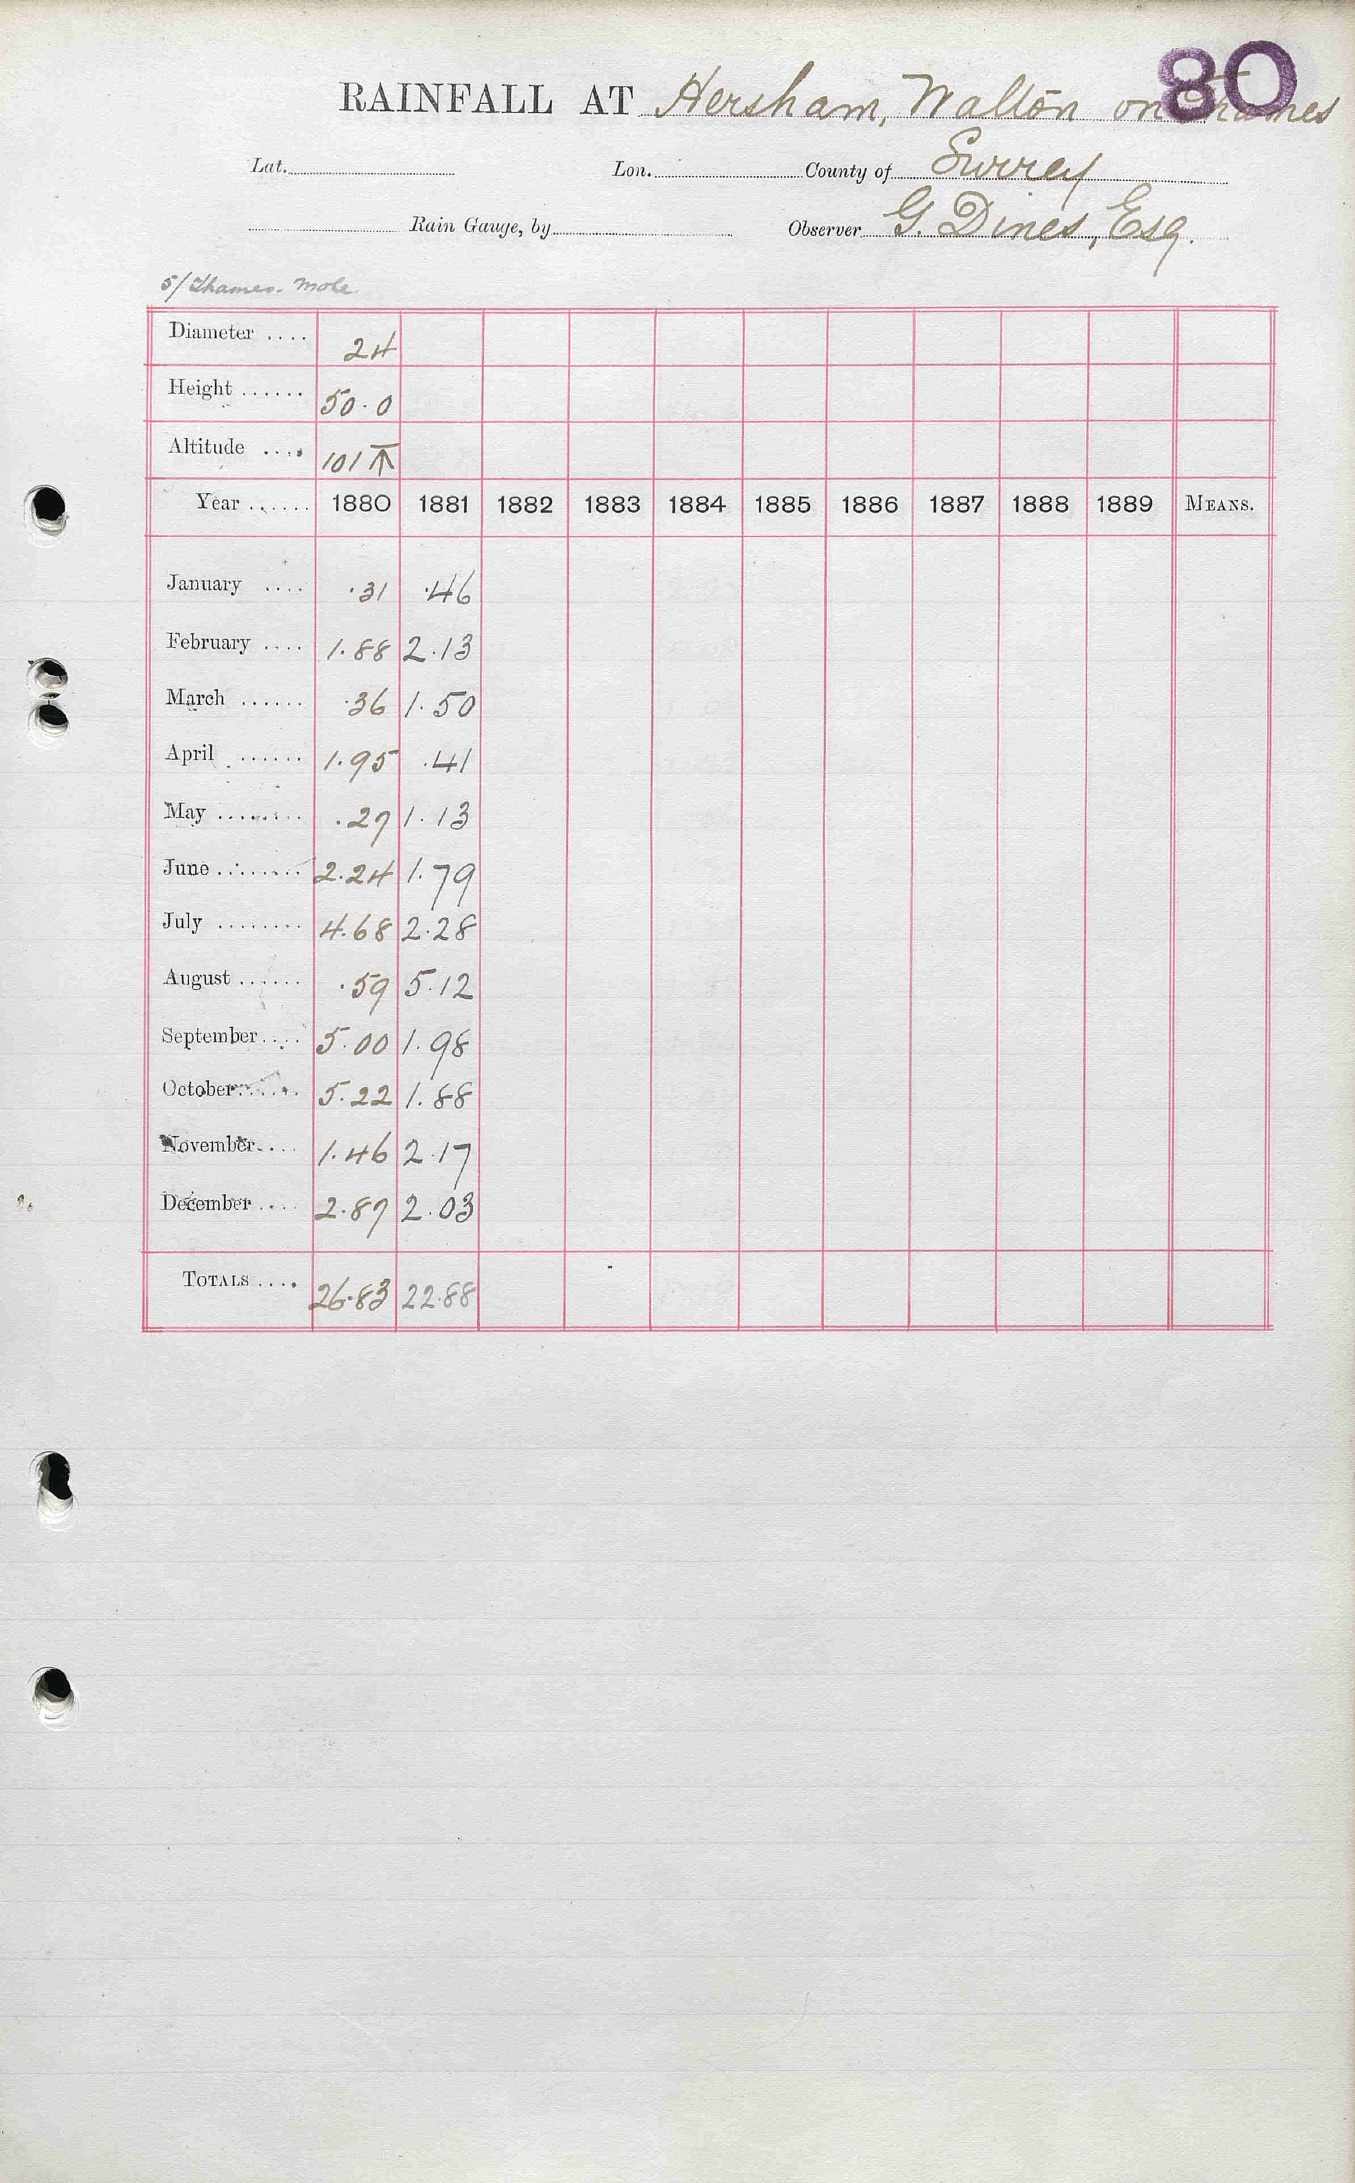 80
RAINFALL AT Hersham, Walton on Thames
Lat. Lon. County of Surrey
Rain Gauge, by Observer G. Dines, Esq.
5/Thames. Mole
Diameter .... 24
Height ...... 50.0
Altitude .... 101
Year ...... 1880 1881 1882 1883 1884 1885 1886 1887 1888 1889 MEANS.
January .... .31 .46
February .... 1.88 2.13
March ...... .36 1.50
April ...... 1.95 .41
May ........ .27 1.13
June ........ 2.24 1.79
July ........ 4.68 2.28
August ...... .59 5.12
September .... 5.00 1.98
October ...... 5.22 1.88
November .... 1.46 2.17
December .... 2.87 2.03
TOTALS .... 26.83 22.88